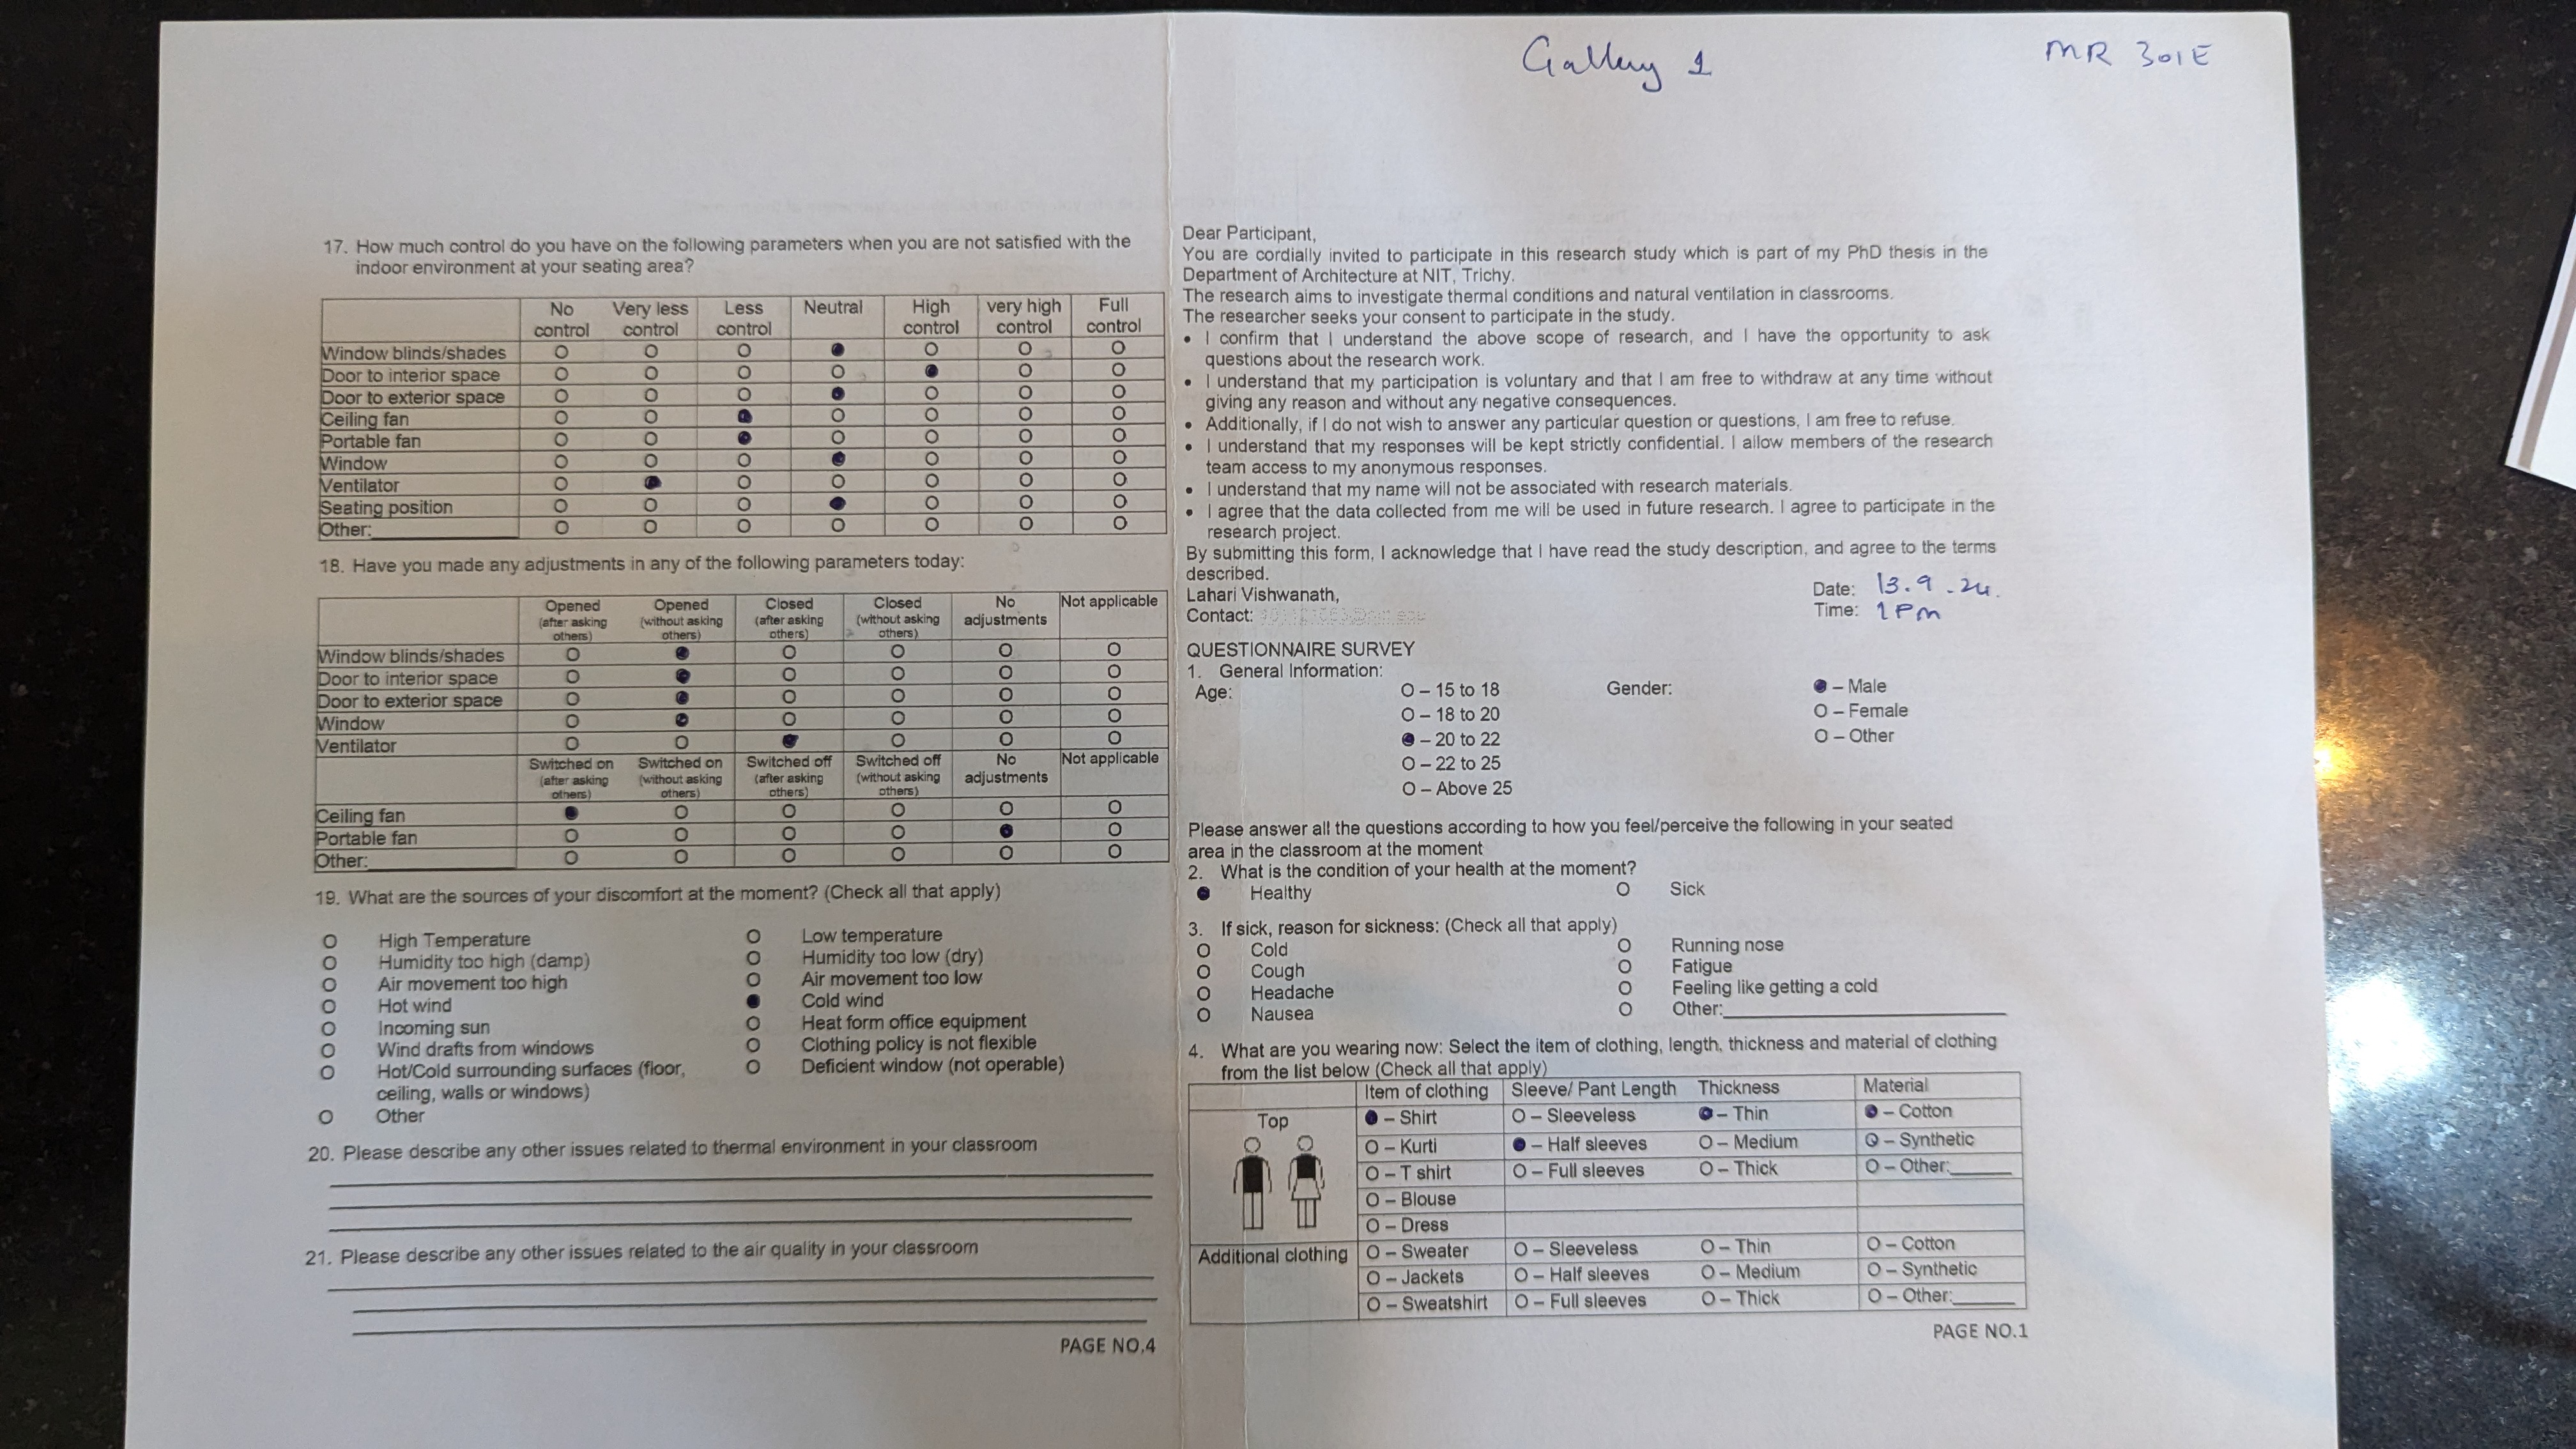 Gallery 1
MR 301E
17. How much control do you have on the following parameters when you are not satisfied with the
indoor environment at your seating area?
No control Very less control Less control Neutral High control very high control Full control
Window blinds/shades O O O ● O O O
Door to interior space O O O O ● O O
Door to exterior space O O O ● O O O
Ceiling fan O O ● O O O O
Portable fan O O ● O O O O
Window O O O ● O O O
Ventilator O ● O O O O O
Seating position O O O ● O O O
Other:__________ O O O O O O O
18. Have you made any adjustments in any of the following parameters today:
Opened (after asking others) Opened (without asking others) Closed (after asking others) Closed (without asking others) No adjustments Not applicable
Window blinds/shades O ● O O O O
Door to interior space O ● O O O O
Door to exterior space O ● O O O O
Window O ● O O O O
Ventilator O O ● O O O
Switched on (after asking others) Switched on (without asking others) Switched off (after asking others) Switched off (without asking others) No adjustments Not applicable
Ceiling fan ● O O O O O
Portable fan O O O O ● O
Other:__________ O O O O O O
19. What are the sources of your discomfort at the moment? (Check all that apply)
O High Temperature O Low temperature
O Humidity too high (damp) O Humidity too low (dry)
O Air movement too high O Air movement too low
O Hot wind ● Cold wind
O Incoming sun O Heat form office equipment
O Wind drafts from windows O Clothing policy is not flexible
O Hot/Cold surrounding surfaces (floor, O Deficient window (not operable)
ceiling, walls or windows)
O Other
20. Please describe any other issues related to thermal environment in your classroom
21. Please describe any other issues related to the air quality in your classroom
PAGE NO.4
Dear Participant,
You are cordially invited to participate in this research study which is part of my PhD thesis in the
Department of Architecture at NIT, Trichy.
The research aims to investigate thermal conditions and natural ventilation in classrooms.
The researcher seeks your consent to participate in the study.
• I confirm that I understand the above scope of research, and I have the opportunity to ask
questions about the research work.
• I understand that my participation is voluntary and that I am free to withdraw at any time without
giving any reason and without any negative consequences.
• Additionally, if I do not wish to answer any particular question or questions, I am free to refuse.
• I understand that my responses will be kept strictly confidential. I allow members of the research
team access to my anonymous responses.
• I understand that my name will not be associated with research materials.
• I agree that the data collected from me will be used in future research. I agree to participate in the
research project.
By submitting this form, I acknowledge that I have read the study description, and agree to the terms
described.
Lahari Vishwanath,
Contact:
Date: 13.9.24.
Time: 1 Pm
QUESTIONNAIRE SURVEY
1. General Information:
Age: O – 15 to 18 Gender: ● – Male
O – 18 to 20 O – Female
● – 20 to 22 O – Other
O – 22 to 25
O – Above 25
Please answer all the questions according to how you feel/perceive the following in your seated
area in the classroom at the moment
2. What is the condition of your health at the moment?
● Healthy O Sick
3. If sick, reason for sickness: (Check all that apply)
O Cold O Running nose
O Cough O Fatigue
O Headache O Feeling like getting a cold
O Nausea O Other:__________
4. What are you wearing now: Select the item of clothing, length, thickness and material of clothing
from the list below (Check all that apply)
Item of clothing Sleeve/ Pant Length Thickness Material
Top ● – Shirt O – Sleeveless ● – Thin ● – Cotton
O – Kurti ● – Half sleeves O – Medium O – Synthetic
O – T shirt O – Full sleeves O – Thick O – Other:______
O – Blouse
O – Dress
Additional clothing O – Sweater O – Sleeveless O – Thin O – Cotton
O – Jackets O – Half sleeves O – Medium O – Synthetic
O – Sweatshirt O – Full sleeves O – Thick O – Other:______
PAGE NO.1